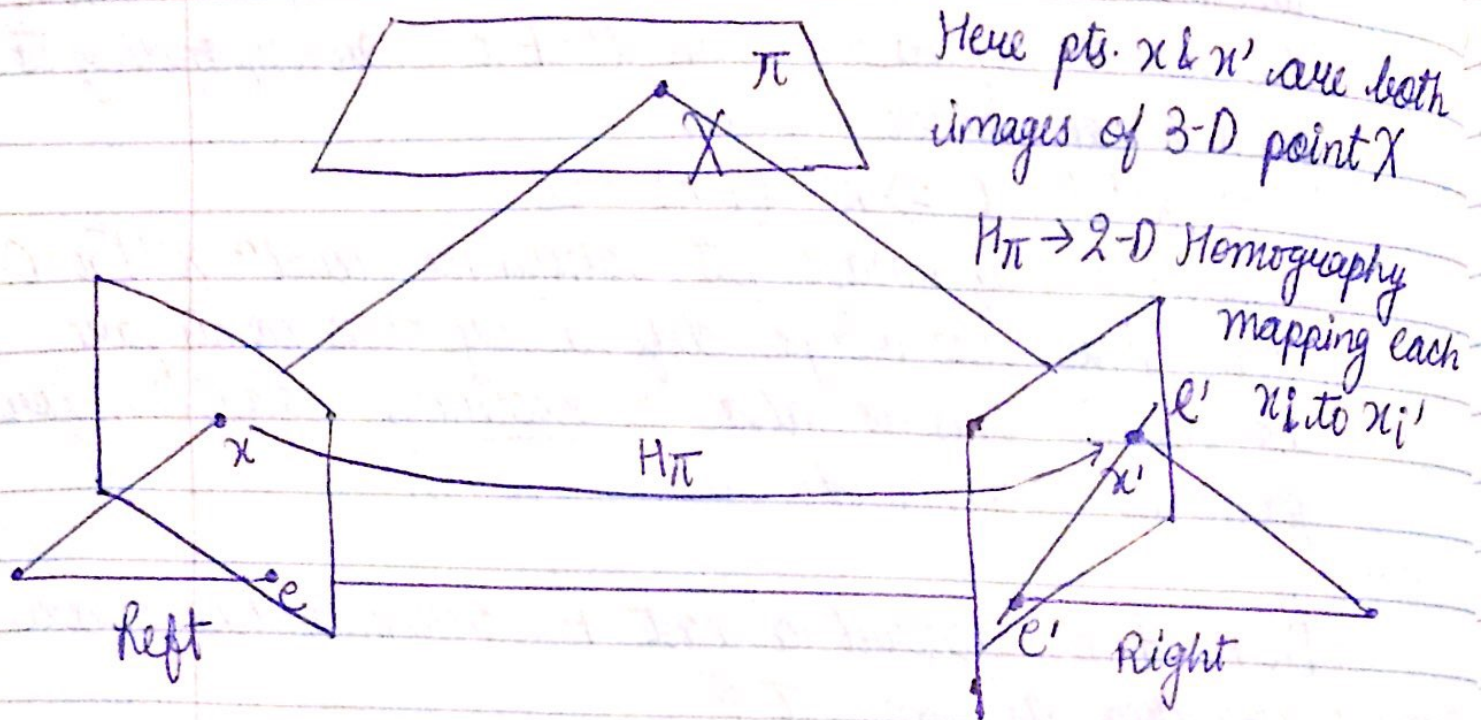 π
X
Here pts. x & x' are both
images of 3-D point X
Hπ → 2-D Homography
mapping each
xi to xi'
l'
x
Hπ
x'
e
e'
Left
Right